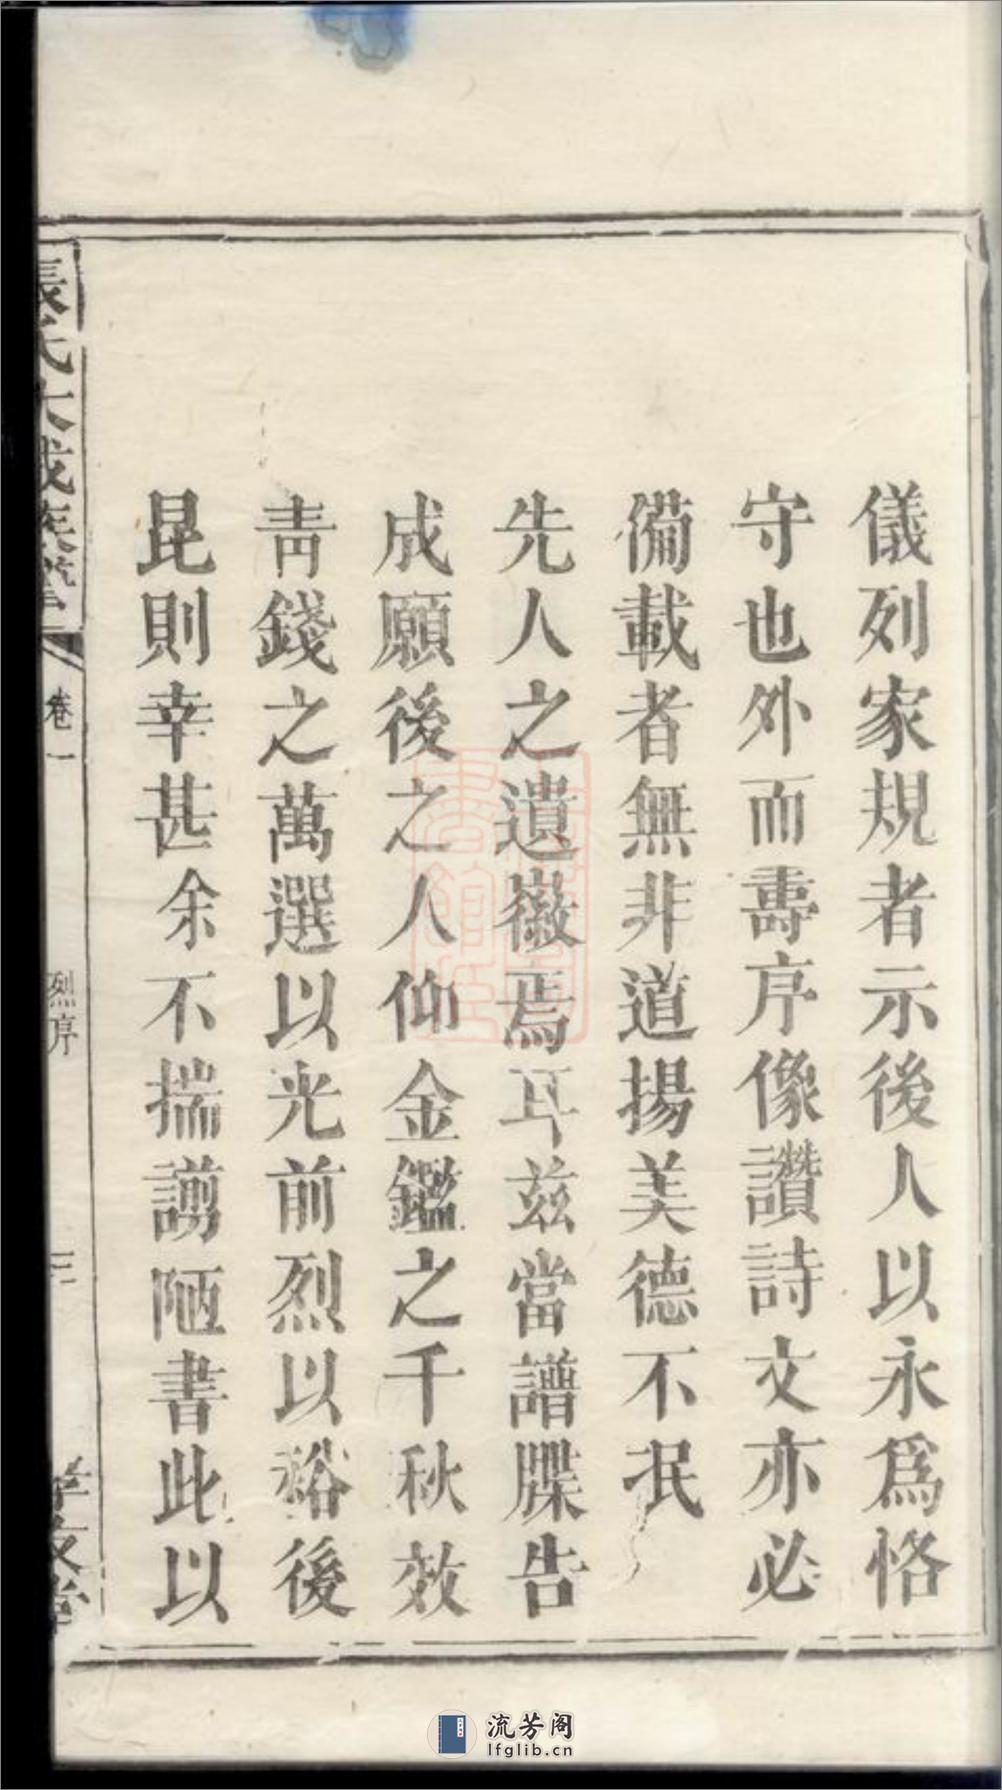 儀列家規者示後人以永爲恪
守也外而壽序像讚詩文亦必
備載者無非道揚美德不泯
先人之遺徽焉耳兹當譜牒告
成願後之人仰金鑑之千秋效
靑錢之萬選以光前烈以裕後
昆則幸甚余不揣謭陋書此以
張氏大成族譜
卷一
烈序
三
孝友堂
流芳阁
lfglib.cn